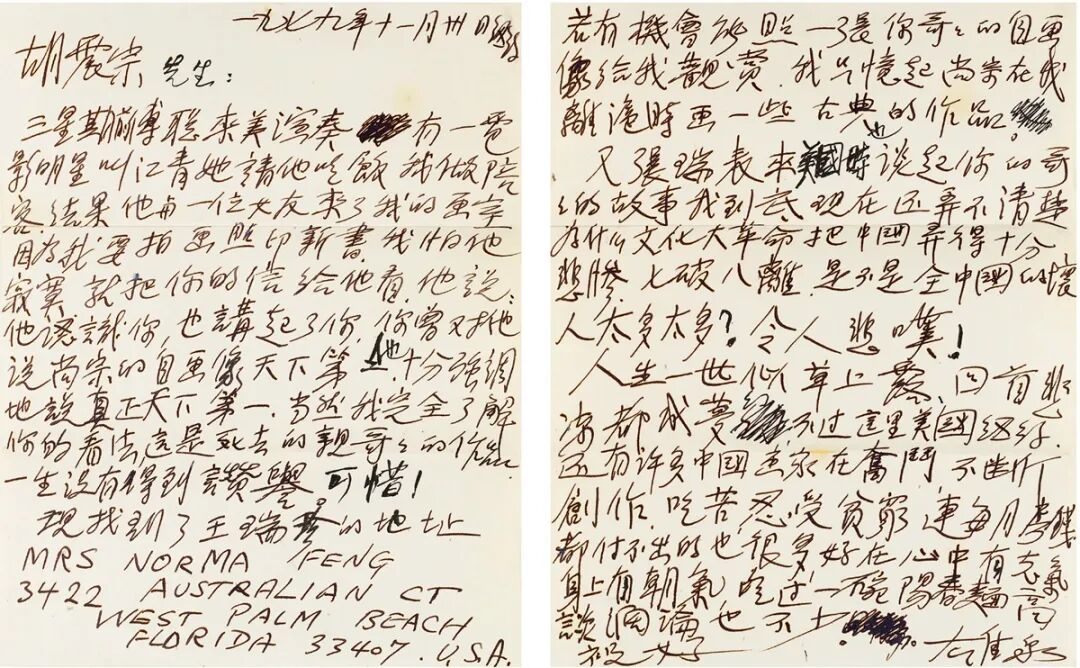 一九七九年十一月卅日
胡震宗先生：
三星期前傅聪来美演奏有一電
影明星叫江青她請他吃飯我做陪
客结果他与一位女友来了我的画室
因为我要拍画照印新書我怕他
寂寞就把你的信给他看他说：
他認識你，也講起了你，你曾又对他
说尚宗的自画像天下第一，他十分強調
地說真正天下第一，当然我完全了解
你的看法这是死去的親哥々的作品
一生没有得到讚譽。可惜！
現找到了王瑞的地址
MRS NORMA FENG
3422 AUSTRALIAN CT
WEST PALM BEACH
FLORIDA 33407. U.S.A.
若有機會能照一張你哥々的自画
像给我觀赏，我只憶起尚宗在我
離滬時画一些古典的作品。
又張瑞表来美國時也说起你的哥
々的故事我到底现在还弄不清楚
为什么文化大革命把中國弄得十分
悲惨，七破八離，是不是全中國的壞
人太多太多？令人悲嘆！
人生一世似草上露，回首
都成夢，不过这里美國纽约，
还有许多中國画家在奮鬥不断
創作，吃苦忍受貧窮，連每月房錢
都付不出的也很多好在心中有志氣
身上有朝氣，吃过一碗陽春麵高
談阔論也不少。
祝好